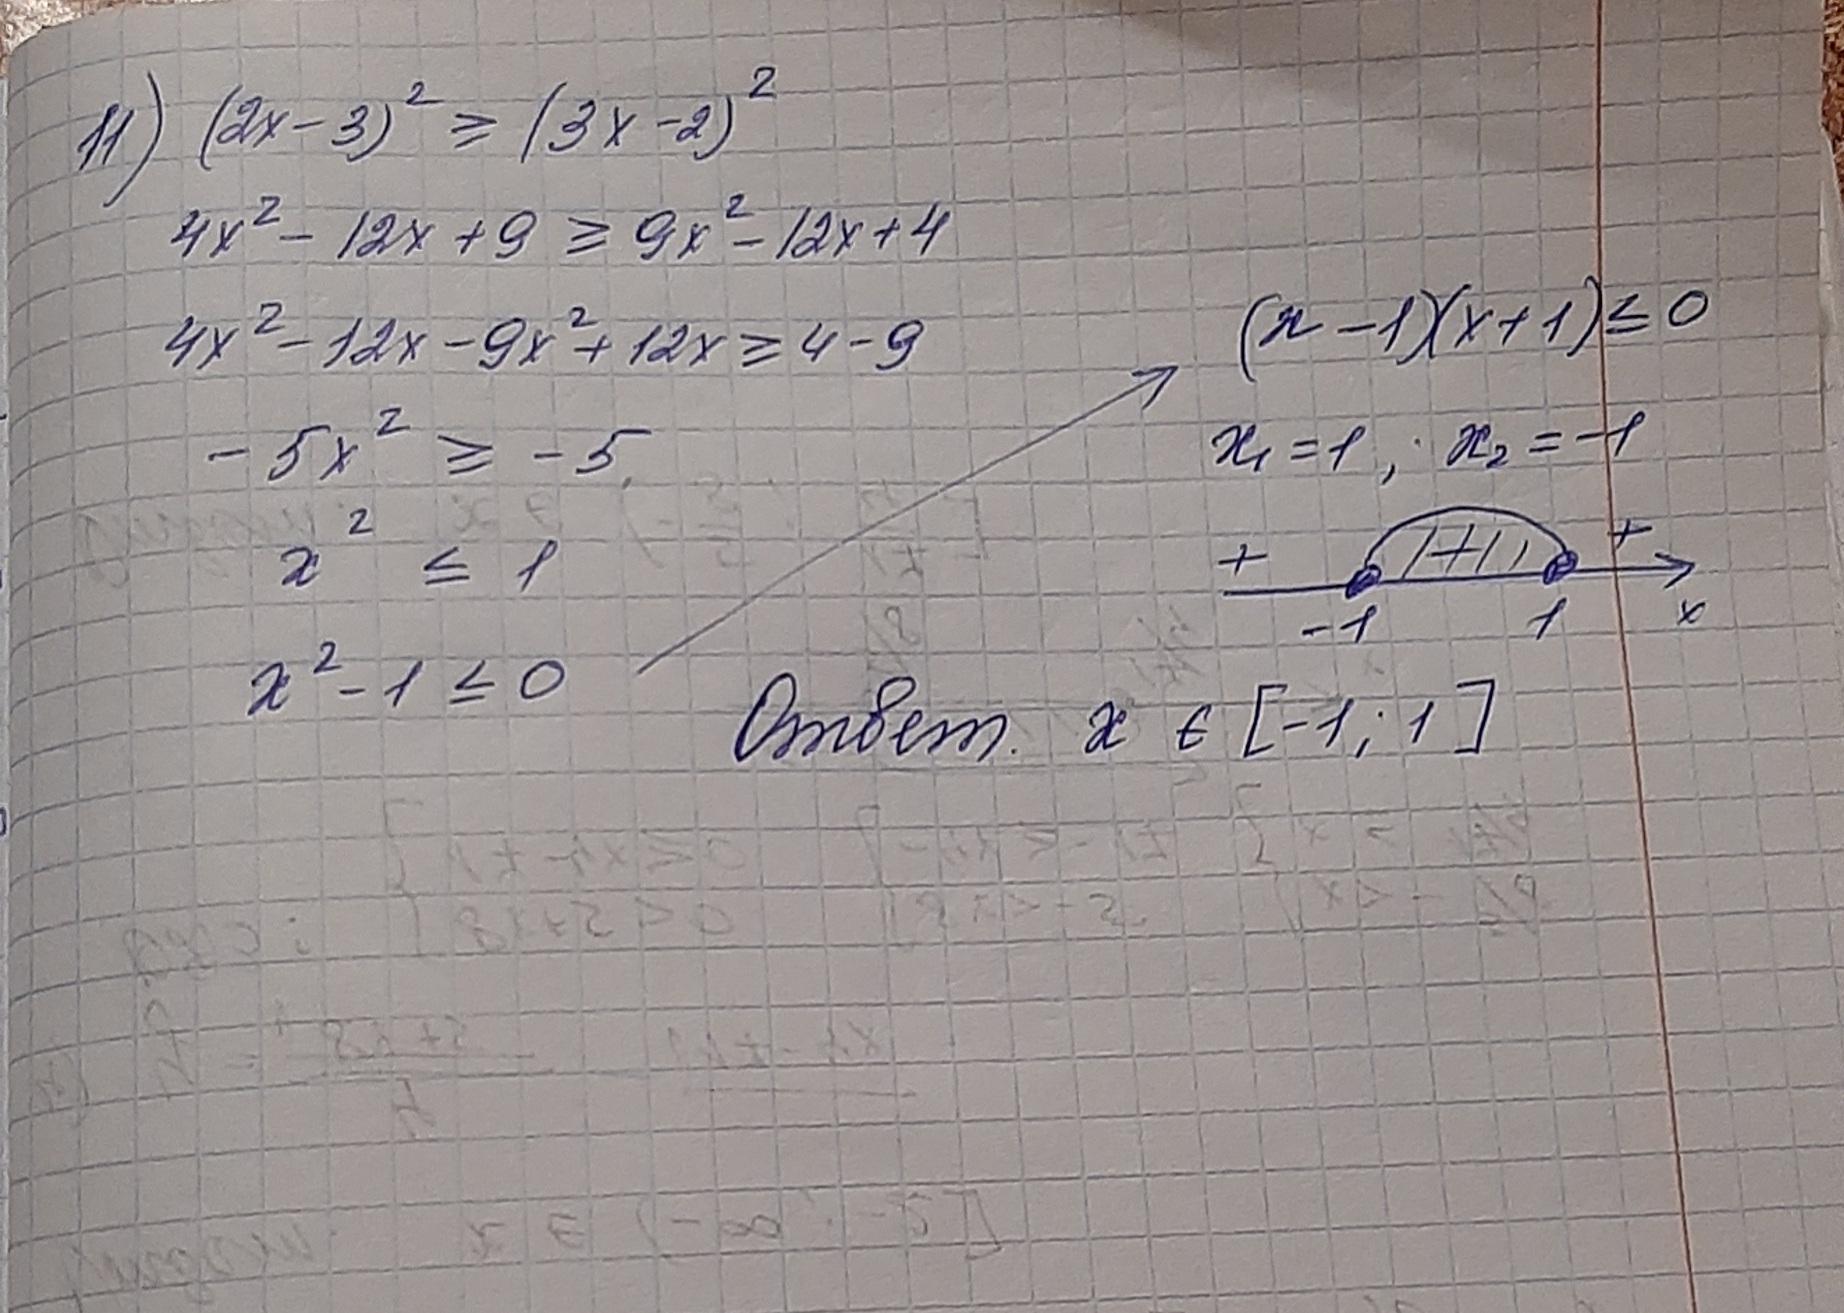 11) (2x-3)² ≥ (3x-2)²
4x² - 12x + 9 ≥ 9x² - 12x + 4
4x² - 12x - 9x² + 12x ≥ 4 - 9
-5x² ≥ -5
x² ≤ 1
x² - 1 ≤ 0
(x-1)(x+1) ≤ 0
x₁ = 1 ; x₂ = -1
+ +
-1 1 x
Ответ. x ∈ [-1; 1]